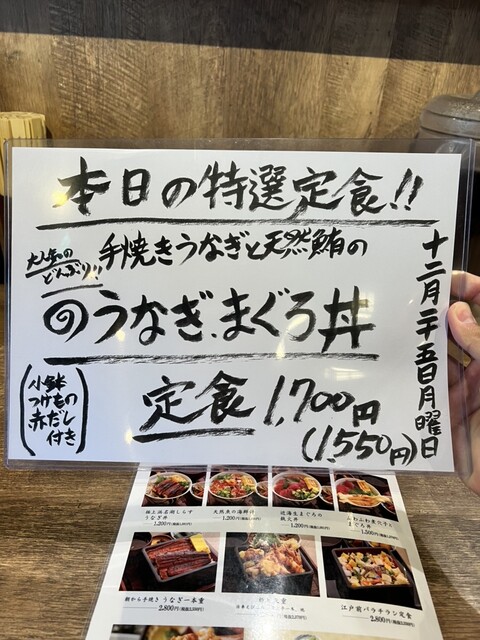 本日の特選定食!!
大人気の
どんぶり!!
手焼きうなぎと天然鮪の
うなぎ、まぐろ丼
定食 1,700円
(1,550円)
(小鉢
つけもの
赤だし
付き)
十二月二十五日月曜日
極上浜名湖しらす
うなぎ丼
1,200円
天然魚の海鮮丼
1,200円
近海生まぐろの
鉄火丼
1,200円
ふわふわ煮穴子と
まぐろ丼
1,500円
朝から手焼き うなぎ一本重
2,800円
2,800円
江戸前バラチラシ定食
2,800円